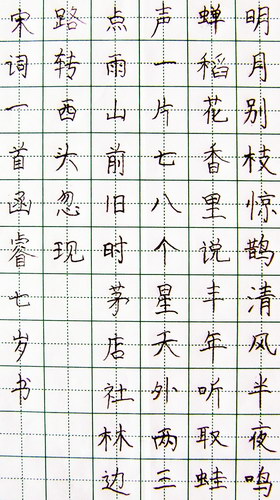 明月别枝惊鹊清风半夜鸣
蝉稻花香里说丰年听取蛙
声一片七八个星天外两三
点雨山前旧时茅店社林边
路转西头忽现
宋词一首函睿七岁书